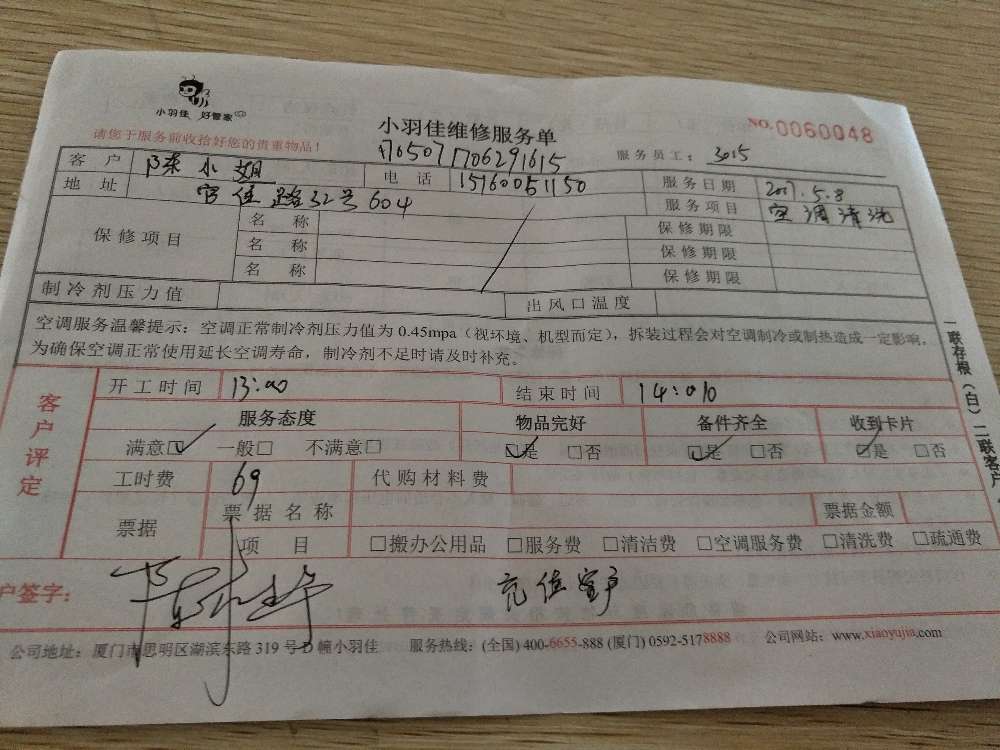 小羽佳 好管家
请您于服务前收拾好您的贵重物品！
小羽佳维修服务单
NO.0060048
1705071706291615
服务员工：3015
客户 陈小姐 电话 15160051150 服务日期 2017.5.8
地址 官任路32号604 服务项目 空调清洗
保修项目 名称 保修期限
名称 保修期限
名称 保修期限
制冷剂压力值 出风口温度
空调服务温馨提示：空调正常制冷剂压力值为 0.45mpa（视环境、机型而定），拆装过程会对空调制冷或制热造成一定影响，
为确保空调正常使用延长空调寿命，制冷剂不足时请及时补充。
客户评定
开工时间 13:00 结束时间 14:00
服务态度 物品完好 备件齐全 收到卡片
满意☑ 一般□ 不满意□ ☑是 □否 ☑是 □否 ☑是 □否
工时费 69 代购材料费
票据 票据名称 票据金额
项目 □搬办公用品 □服务费 □清洁费 □空调服务费 □清洗费 □疏通费
户签字：
充值客户
公司地址：厦门市思明区湖滨东路 319 号 D 幢小羽佳 服务热线：(全国) 400-6655-888 (厦门) 0592-5178888 公司网站：www.xiaoyujia.com
一联存根（白）二联客户